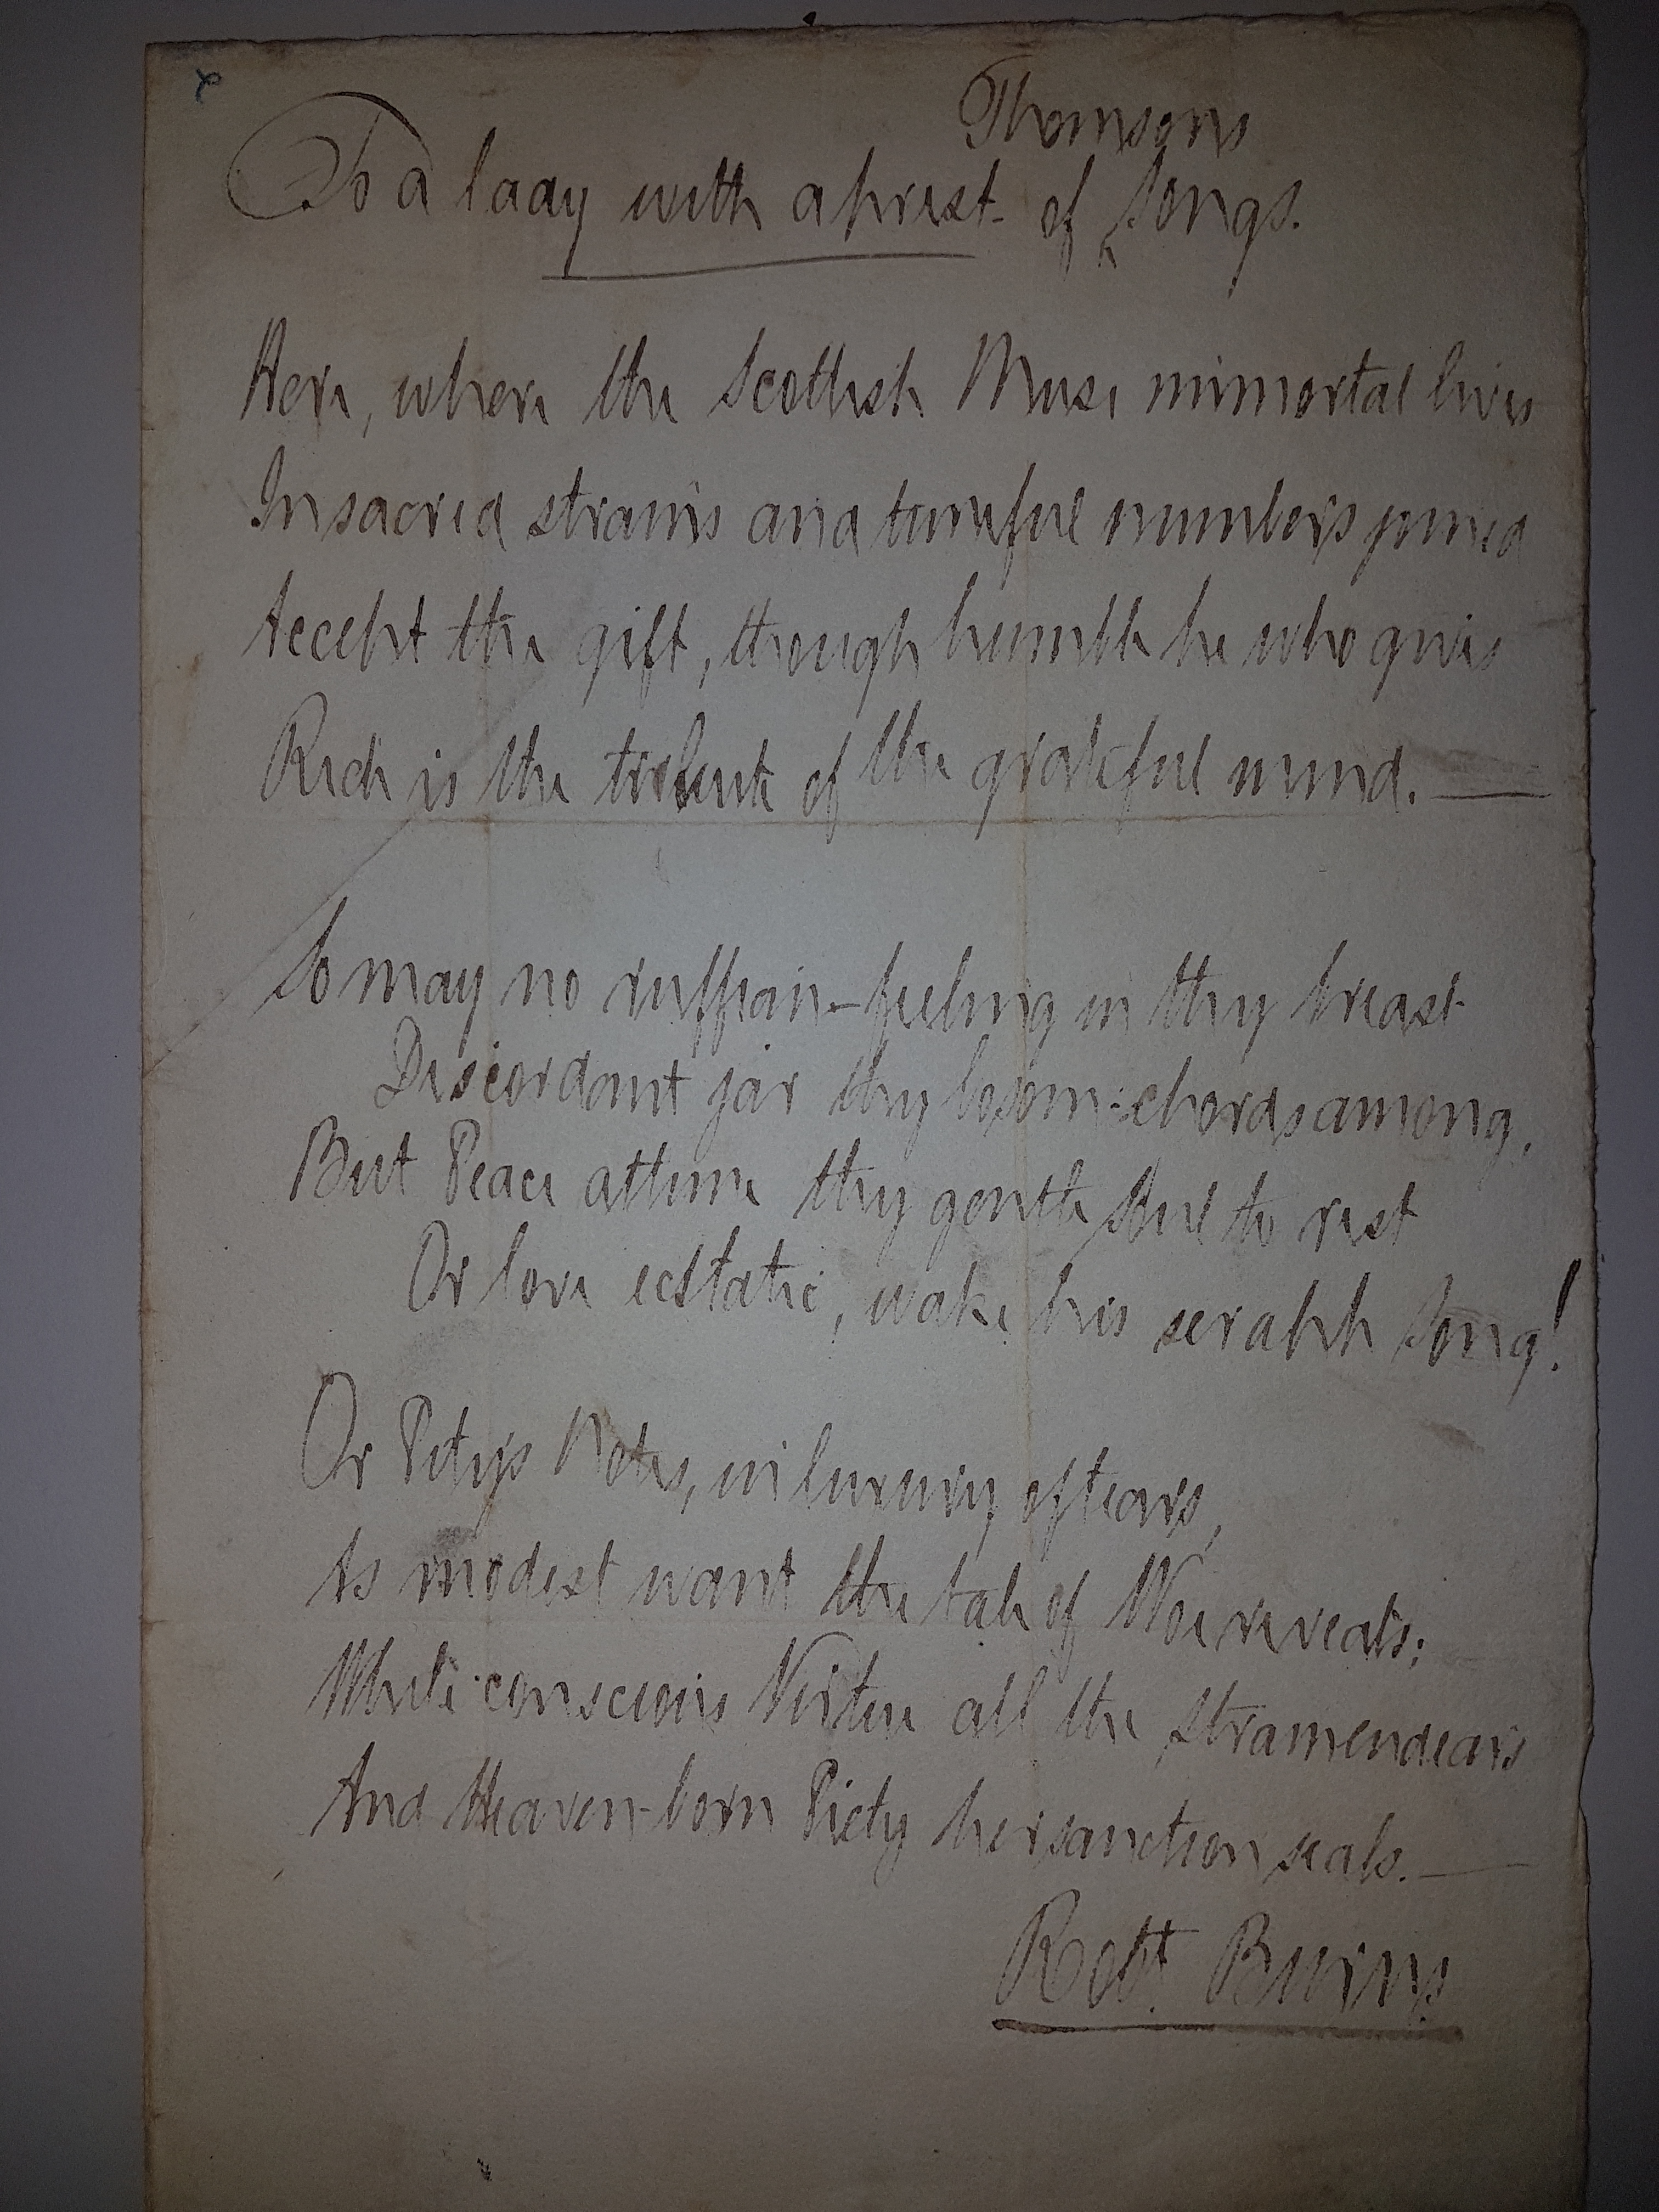 2
Thomson's
To a Lady with a prest. of Songs.
Here, where the Scottish Muse immortal lives
In sacred strains and tuneful numbers joined
Accept the gift, though humble he who gives
Rich is the tribute of the grateful mind.
So may no ruffian-feeling in thy breast
Discordant jar thy bosom-chords among,
But Peace attune thy gentle Soul to rest
Or love ecstatic, wake his seraph Song!
Or Pity's Notes, in luxury of tears,
As modest want the tale of Woe reveals;
While conscious Virtue all the Strain endears
And Heaven-born Piety her sanction seals.
Robt Burns